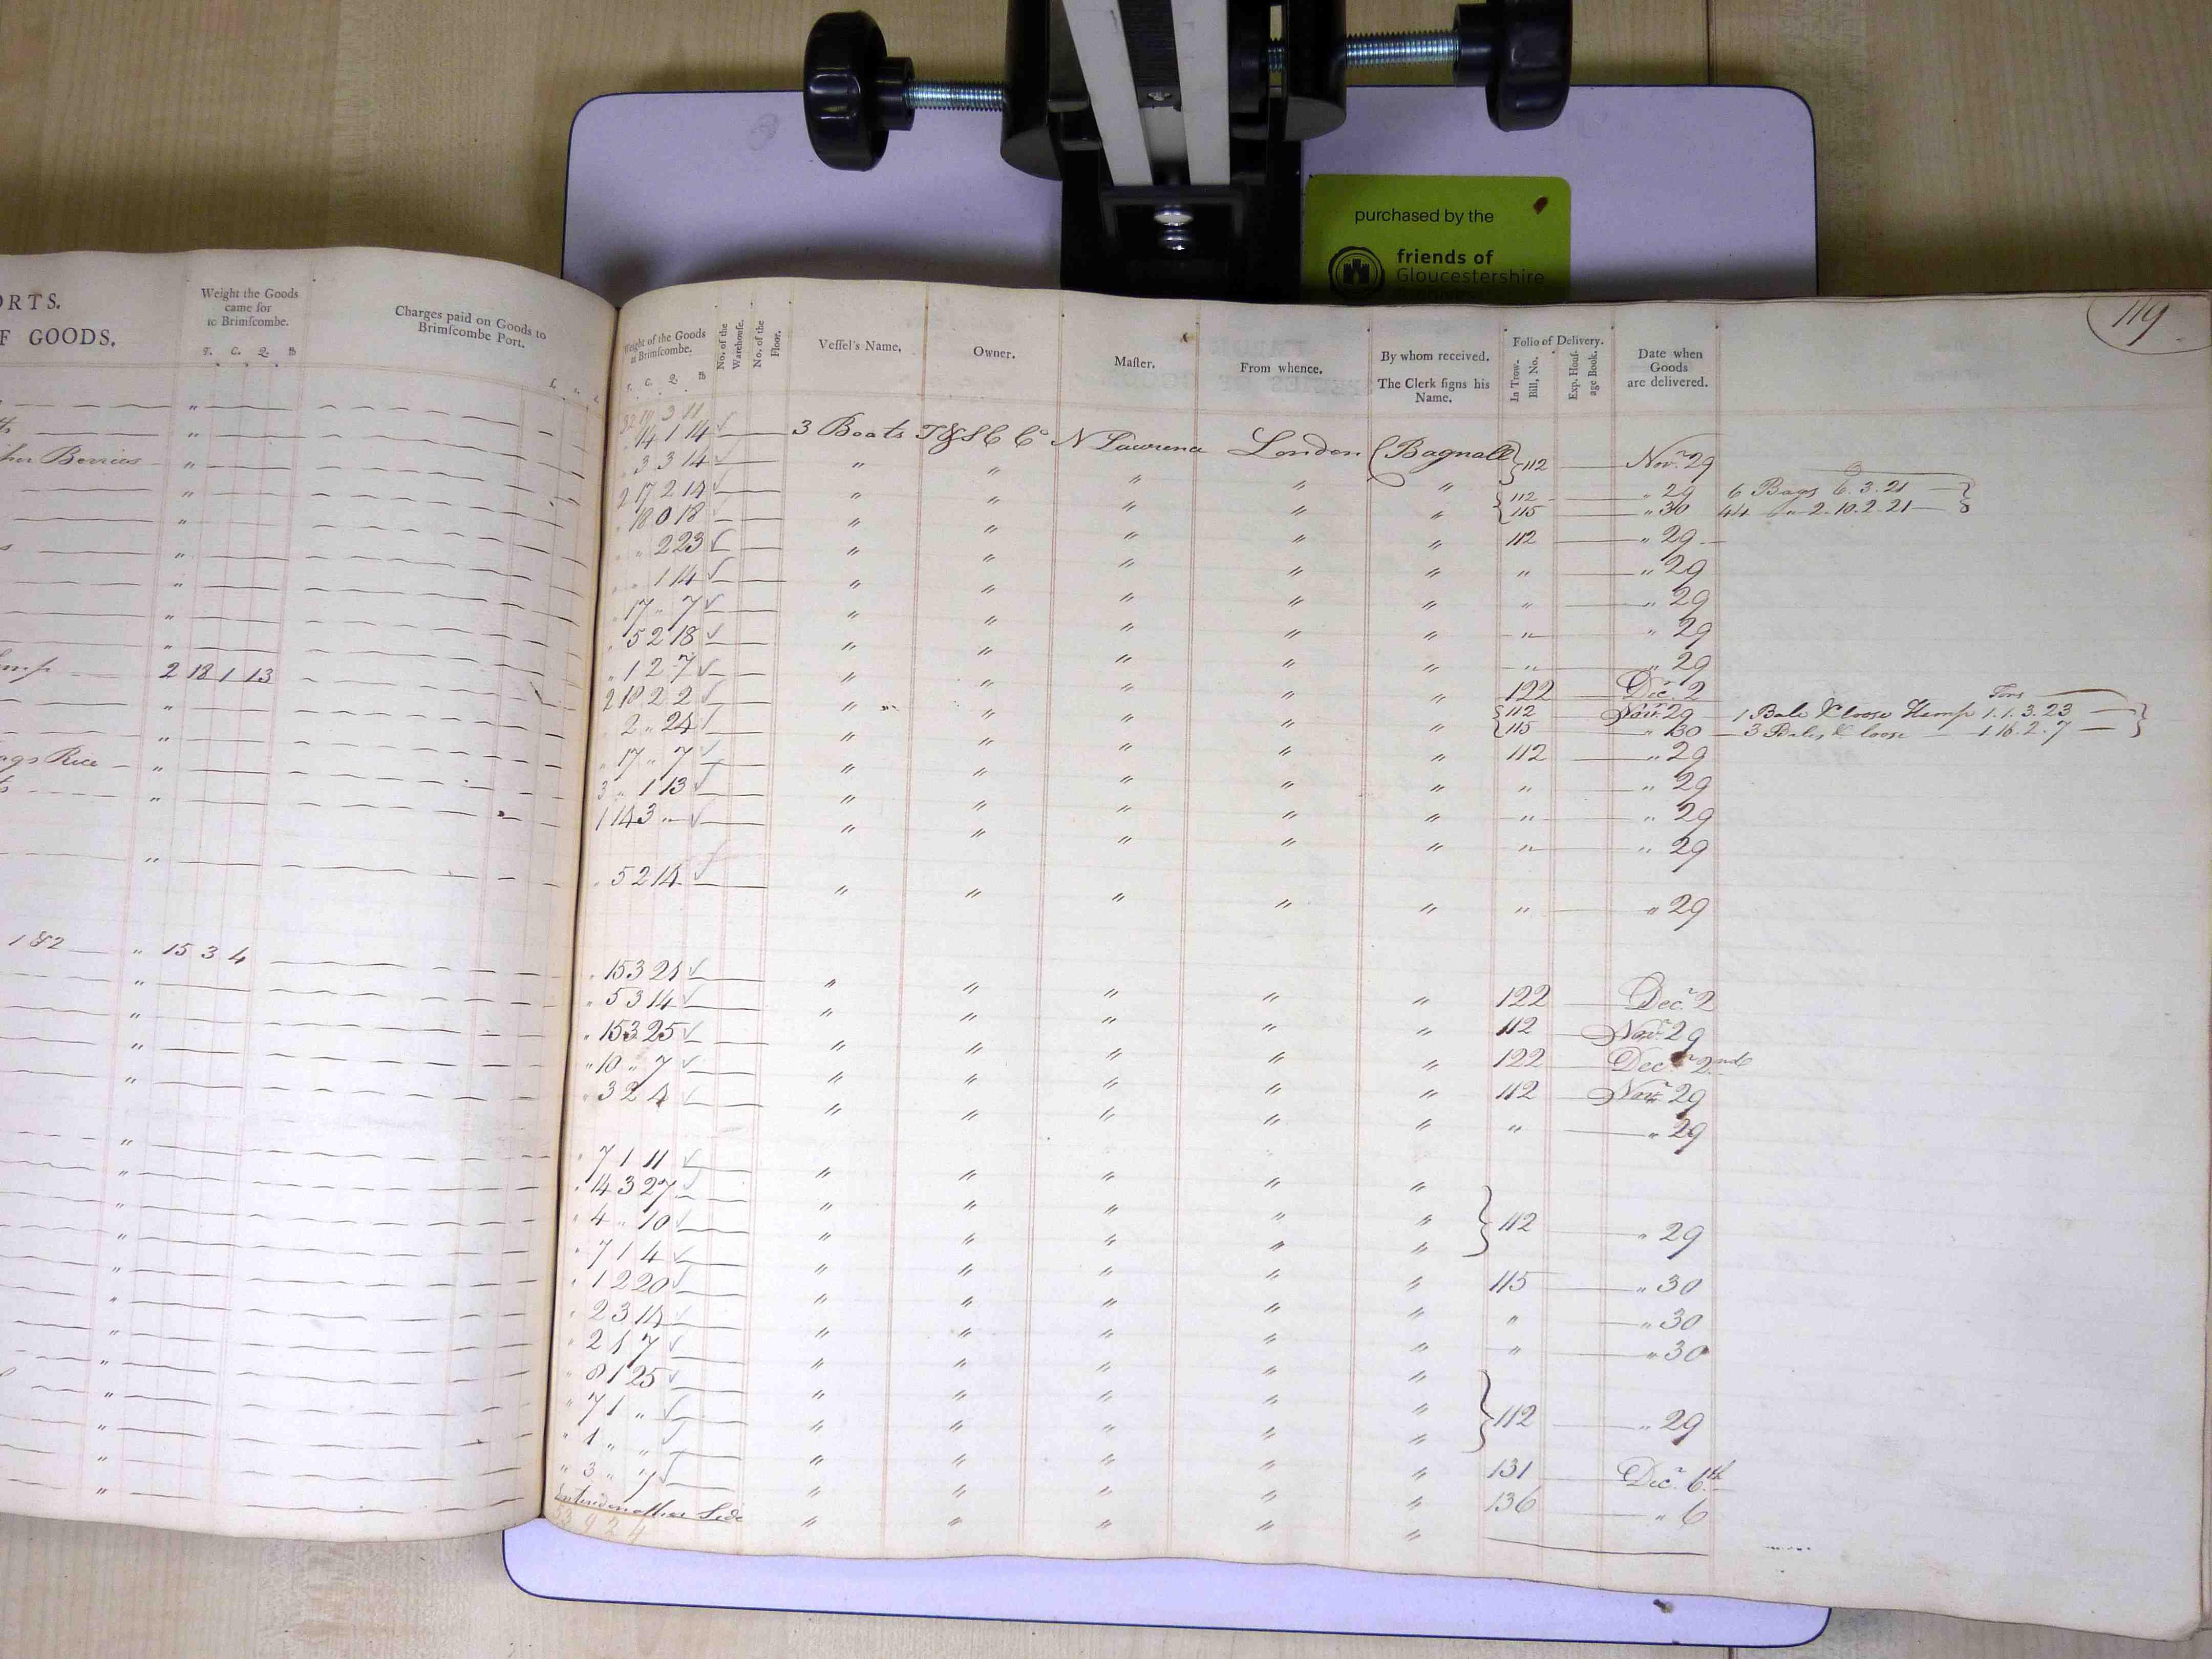 purchased by the
friends of
Gloucestershire
ORTS.
F GOODS.
Weight the Goods
came for
to Brimſcombe.
T. C. Q. lb
Charges paid on Goods to
Brimſcombe Port.
£. s.
her Berries "
emp 2 18 1 13
ags Rice "
1 & 2 " 15 3 4
119
Weight of the Goods
at Brimſcombe.
T. C. Q. lb
No. of the
Warehouſe.
No. of the
Floor.
Veſſel's Name.
Owner.
Maſter.
From whence.
By whom received.
The Clerk ſigns his
Name.
Folio of Delivery.
In Trow-
Bill, No.
Exp. Houſ-
age Book.
Date when
Goods
are delivered.
" 14 1 14 3 Boats T & S C Co N Lawrence London Bagnall 112 Novr. 29
" 3 3 14 " " " " "
2 17 2 14 " " " " " 112 " 29 6 Bags 6. 3. 21
115 " 30 44 " 2. 10. 2. 21
" 18 0 18 " " " " " 112 " 29
" " 2 23 " " " " " " " 29
" " 1 14 " " " " " " " 29
" 17 " 7 " " " " " " " 29
" 5 2 18 " " " " " " " 29
" 1 2 7 " " " " " 122 Decr. 2
2 18 2 2 " " " " " 112 Novr. 29 1 Bale & loose Hemp 1. 1. 3. 23
Tons
115 " 30 3 Bales & loose 1. 16. 2. 7
" 2 " 24 " " " " " 112 " 29
" 17 " 7 " " " " " " " 29
3 " 1 13 " " " " " " " 29
1 14 3 " " " " " " " " 29
" 5 2 14 " " " " " " " 29
" 15 3 21 " " " " " 122 Decr. 2
" 5 3 14 " " " " " 112 Novr. 29
" 15 3 25 " " " " " 122 Decr. 2nd
" 10 " 7 " " " " " 112 Novr. 29
" 3 2 4 " " " " " " " 29
" 7 1 11 " " " " "
" 14 3 27 " " " " " 112 " 29
" 4 " 10 " " " " "
" 7 1 4 " " " " " 115 " 30
" 1 2 20 " " " " " " " 30
" 2 3 14 " " " " " " " 30
" 2 1 7 " " " " "
" 8 1 25 " " " " " 112 " 29
" 7 1 " " " " " "
" 1 " " " " " " " 131 Decr. 6th
" 3 " 7 " " " " " 136 " 6
Entered on other Side " " " " "
53 9 2 4